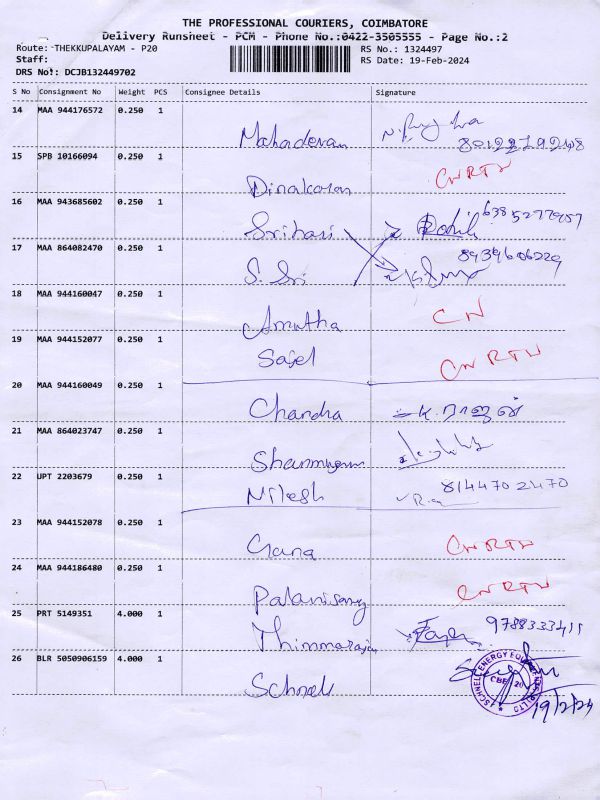 THE PROFESSIONAL COURIERS, COIMBATORE
Delivery Runsheet - PCM - Phone No.:0422-3505555 - Page No.:2
Route: THEKKUPALAYAM - P20 RS No.: 1324497
Staff: RS Date: 19-Feb-2024
DRS No!: DCJB132449702
S No Consignment No Weight PCS Consignee Details Signature
14 MAA 944176572 0.250 1
Mahadevan
15 SPB 10166094 0.250 1
Dinakaran CNRTN
16 MAA 943685602 0.250 1
Srihari 6385277957
17 MAA 864082470 0.250 1
S. Sri 8939606229
18 MAA 944160047 0.250 1
Amutha CN
19 MAA 944152077 0.250 1
Sajel CNRTN
20 MAA 944160049 0.250 1
Chandra K. ராஜன்
21 MAA 864023747 0.250 1
Shanmugam
22 UPT 2203679 0.250 1
Nilesh 8144702470
23 MAA 944152078 0.250 1
Gana CNRTN
24 MAA 944186480 0.250 1
Palanisamy CNRTN
25 PRT 5149351 4.000 1
Thimmarajan 9788333411
26 BLR 5050906159 4.000 1
Schnell
SCHNELL ENERGY EQUIPMENTS (P) LTD
CBE 20
19/2/24